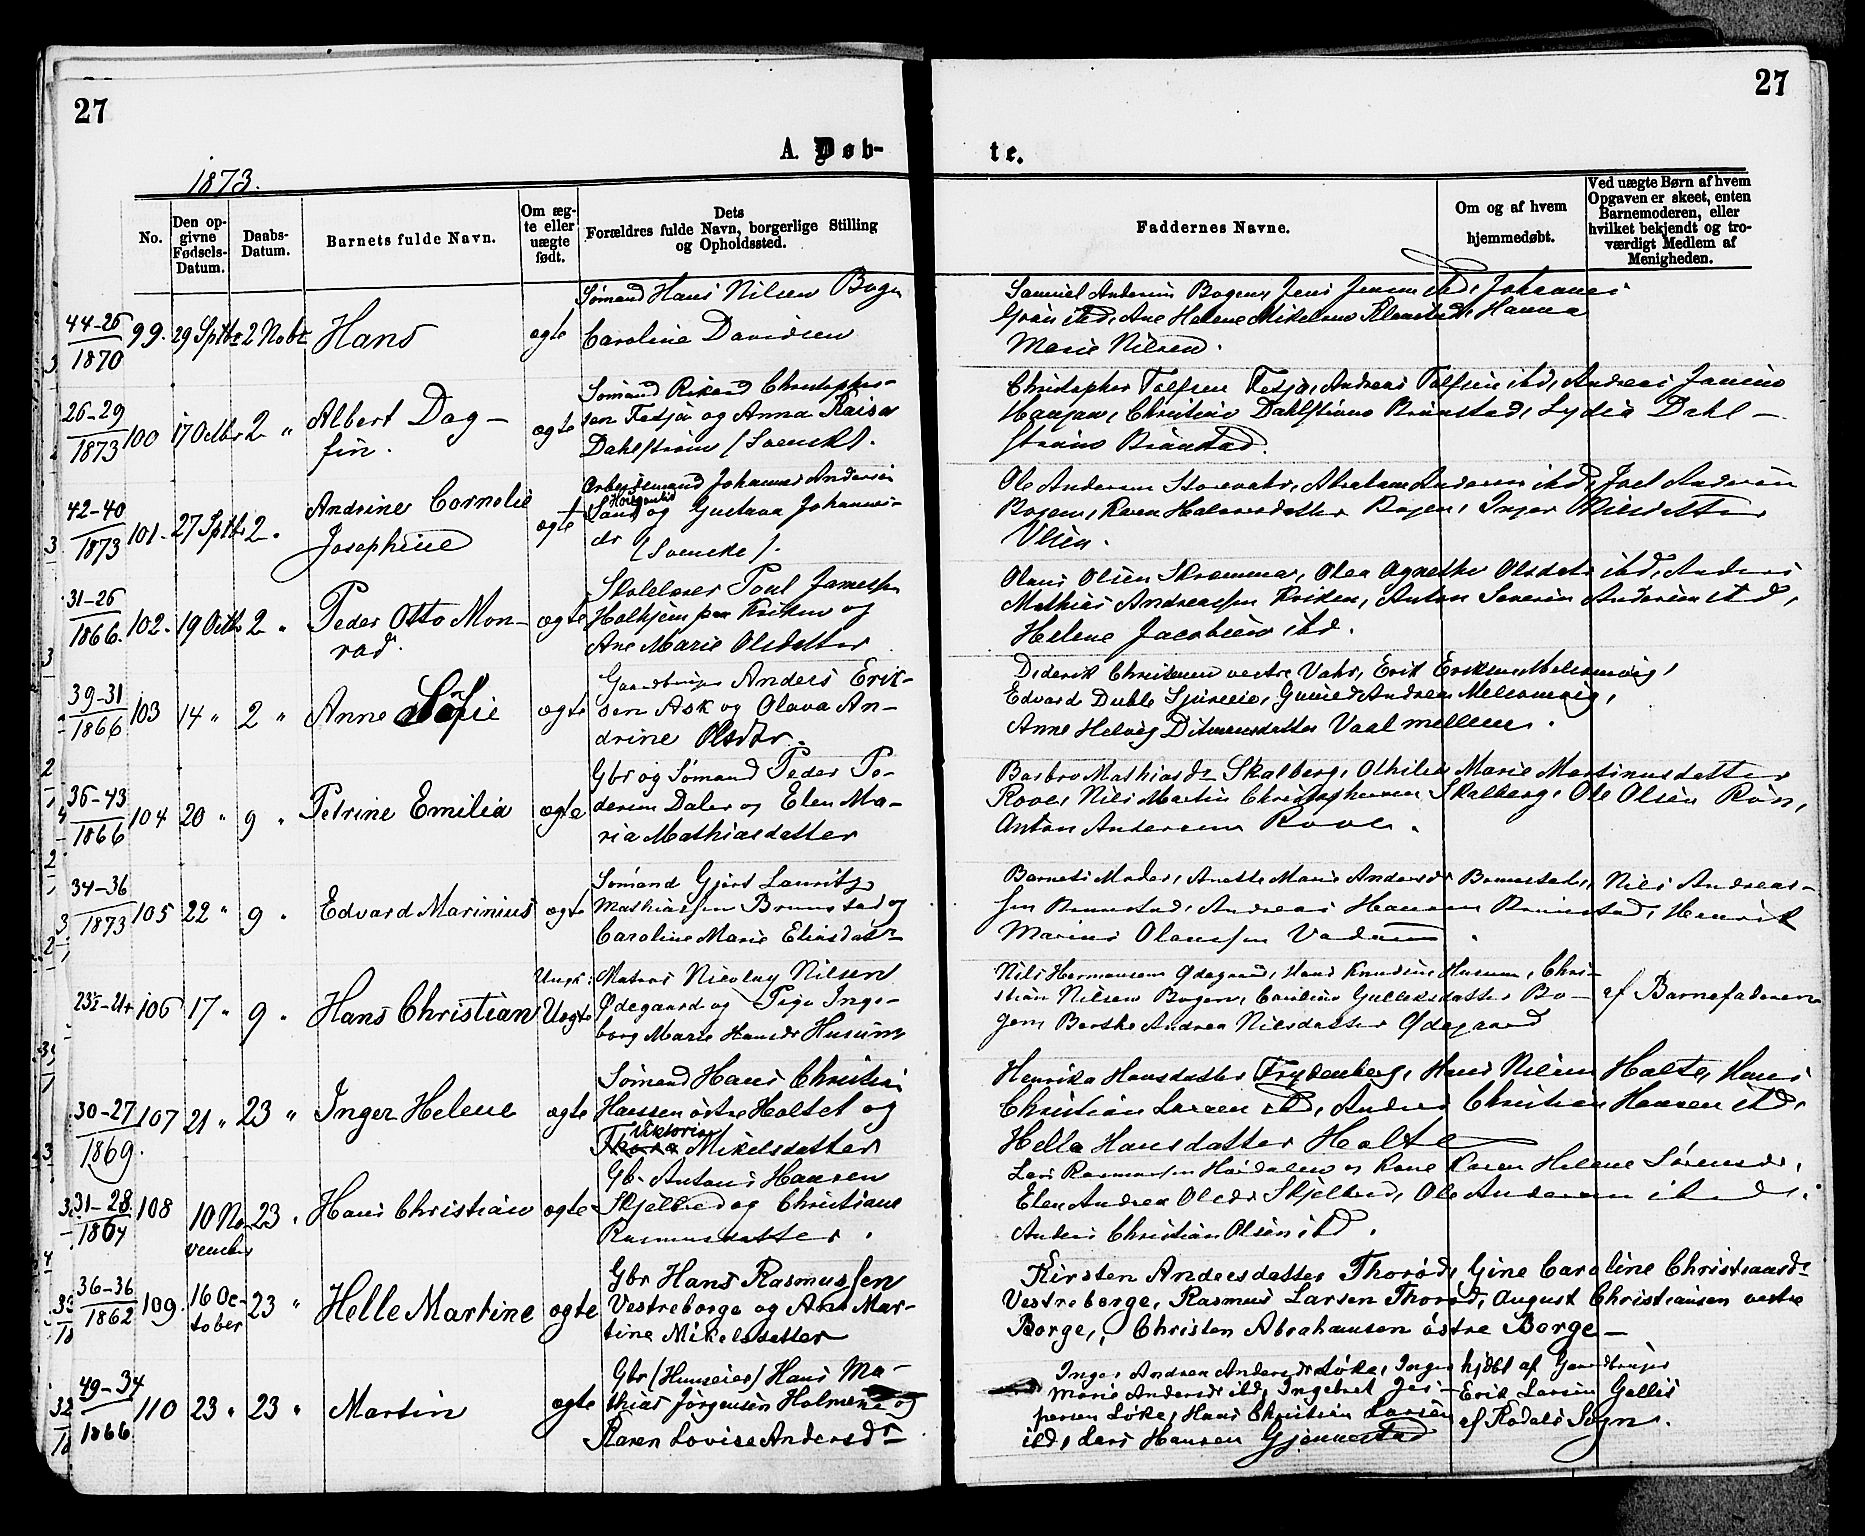 27
27
A. Døb-
te.
1873.
No.
Den op-
givne
Fødsels-
Datum.
Daabs-
Datum.
Barnets fulde Navn.
Om æg-
te eller
uægte
født.
Dets
Forældres fulde Navn, borgerlige Stilling
og Opholdssted.
Faddernes Navne.
Om og af hvem
hjemmedøbt.
Ved uægte Børn af hvem
Opgaven er skeet, enten
Barnemoderen, eller
hvilket bekjendt og tro-
værdigt Medlem af
Menigheden.
44-26
1870
99. 29 Sptbr 2 Nobr Hans ægte
Sømand Hans Nilsen Bogen
Caroline Davidsen
Samuel Andersen Bogen, Jens Jensen ibd, Johannes
ibd, Ane Helene Mikelsen Hanna
Marie Nilsen.
26-29
1873
100 17 Octbr 2 "
Albert Dag-
fin.
ægte
Sømand Rikard Christopher-
sen Fedjø og Anna Raisa
Dahlstrøm (Svensk).
Christopher Tolfsen Fedjø, Andreas Tolfsen ibd, Andreas
Haugen, Christine Dahlstrøm Brunstad, Lydia Dahl-
strøm Brunstad.
42-40
1873
101. 27 Sptbr 2 "
Andrine Cornelie
Josephine
ægte
Arbeidsmand Johannes Andersen
Sand og Gustava Johannes-
dr (Svenske).
Ole Andersen Storevahr, Abraham Andersen ibd, Joel Andersen
Bogen, Karen Halvorsdatter Bogen, Inger Nilsdatter
31-26
1866.
102. 19 Octbr 2 "
Peder Otto Mon-
rad.
ægte
Skolelærer Poul Jamessen
Holtejem paa Kviken og
Ane Marie Olsdatter
Olaus Olsen Skramma, Olea Agnethe Olsdatr ibd, Anders
Mathias Andreassen Kviken, Anton Severin Andersen ibd,
Helene Jacobsen ibd.
39-31
1866
103 14 " 2 "
Anne Sofie
ægte
Gaardbruger Anders Erik-
sen Ask og Olava An-
drine Olsdtr.
Diderik Christensen vestre Vahr, Erik Eriksen Melsomvig,
Edvard Duble Andrea Melsomvig,
Anne Helvig Ditmansdatter Vaal mellem.
36-43
1866
104 20 " 9 "
Petrine Emilia
ægte
Gbr og Sømand Peder Pe-
dersen Daler og Elen Ma-
ria Mathiasdatter
Barbro Mathiasdr Skalberg, Othilia Marie Martinusdatter
Rove, Nils Martin Christophersen Skalberg, Ole Olsen Røn,
Anton Andersen Rove.
34-36
1873
105 22 " 9 "
Edvard Marinius
ægte
Sømand Gjert Lauritz
Mathiassen Brunstad og
Caroline Marie Eliasdatr
Barnets Moder, Anette Marie Andersdr Brunstad, Nils Andreas-
sen Brunstad, Andreas Hansen Brunstad, Henrik
Marius Olaussen Vadum.
23½-21½
106 17 " 9 "
Hans Christian
Ungk:
Uægte
Matros Nicolay Nilsen
Ødegaard og Pige Inge-
borg Marie Hansdr Husum
Nils Hermansen Ødegaard, Hans Knudsen Husum, Chri-
stian Nilsen Bogen, Caroline Gulleksdatter Bo-
gen Berthe Andrea Nilsdatter Ødegaard
af Barnefaderen
30-27
1869.
107 21 " 23 "
Inger Helene
ægte
Sømand Hans Christian
Hanssen østre Holtet og
Viktoria
Thora Mikelsdatter
Henrika Hansdatter Frydenberg, Hans Nilsen Holte, Hans
Christian Larsen ibd, Anders Christian Hansen ibd,
Hella Hansdatter Holte
31-28
1864
108
10 No-
vember
23 "
Hans Christian
ægte
Gb. Antons Hansen
Skjelbred og Christiane
Rasmusdatter.
Lars Rasmussen Høidalen og Kone Karen Helene Sørensdr,
Elen Andrea Olsdr Skjelbred, Ole Andersen ibd.
Anders Christian Olsen ibd.
36-36
1862
109.
16 Oc-
tober
23 "
Helle Martine
ægte
Gbr Hans Rasmussen
Vestreborge og Ane Mar-
tine Mikelsdatter
Kirsten Andersdatter Thorød, Gine Caroline Christiansdr
Vestreborge, Rasmus Larsen Thorød, August Christiansen vestre
Borge, Christen Abrahamsen østre Borge-
49-34
1866
110 23 " 23 "
Martin
ægte
Gbr (Huuseier) Hans Ma-
thias Jørgensen Holmene og
Karen Lovise Andersdr
Inger Andrea Andersdr Løke, Inger
Marie Andersdr ibd, Ingebret Jes-
persen Løke, Hans Christian Larsen
ibd, Lars Hansen Gjennestad
hjdbt af Gaardbruger
Erik Larsen Gallis
af Kodals Sogn.